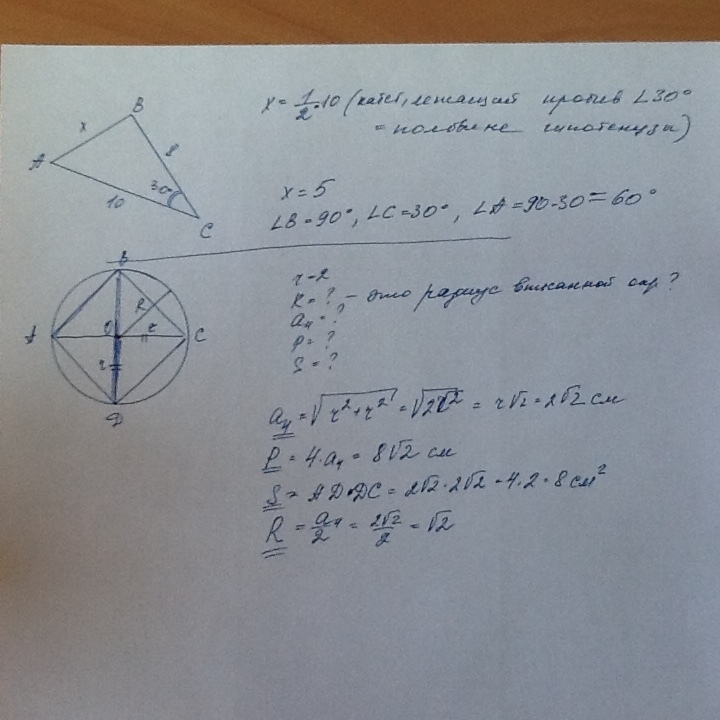 B
x
8
A
30°
10
C
x = 1/2 · 10 (катет, лежащий против ∠30°
= половине гипотенузы)
x = 5
∠B = 90°, ∠C = 30°, ∠A = 90-30 = 60°
B
R
A
O
r
C
r
D
r = 2
R = ? - это радиус вписанной окр?
a₄ = ?
P = ?
S = ?
a₄ = √r²+r² = √2r² = r√2 = 2√2 см
P = 4·a₄ = 8√2 см
S = AD·DC = 2√2 · 2√2 = 4·2 = 8 см²
R = a₄/2 = 2√2/2 = √2